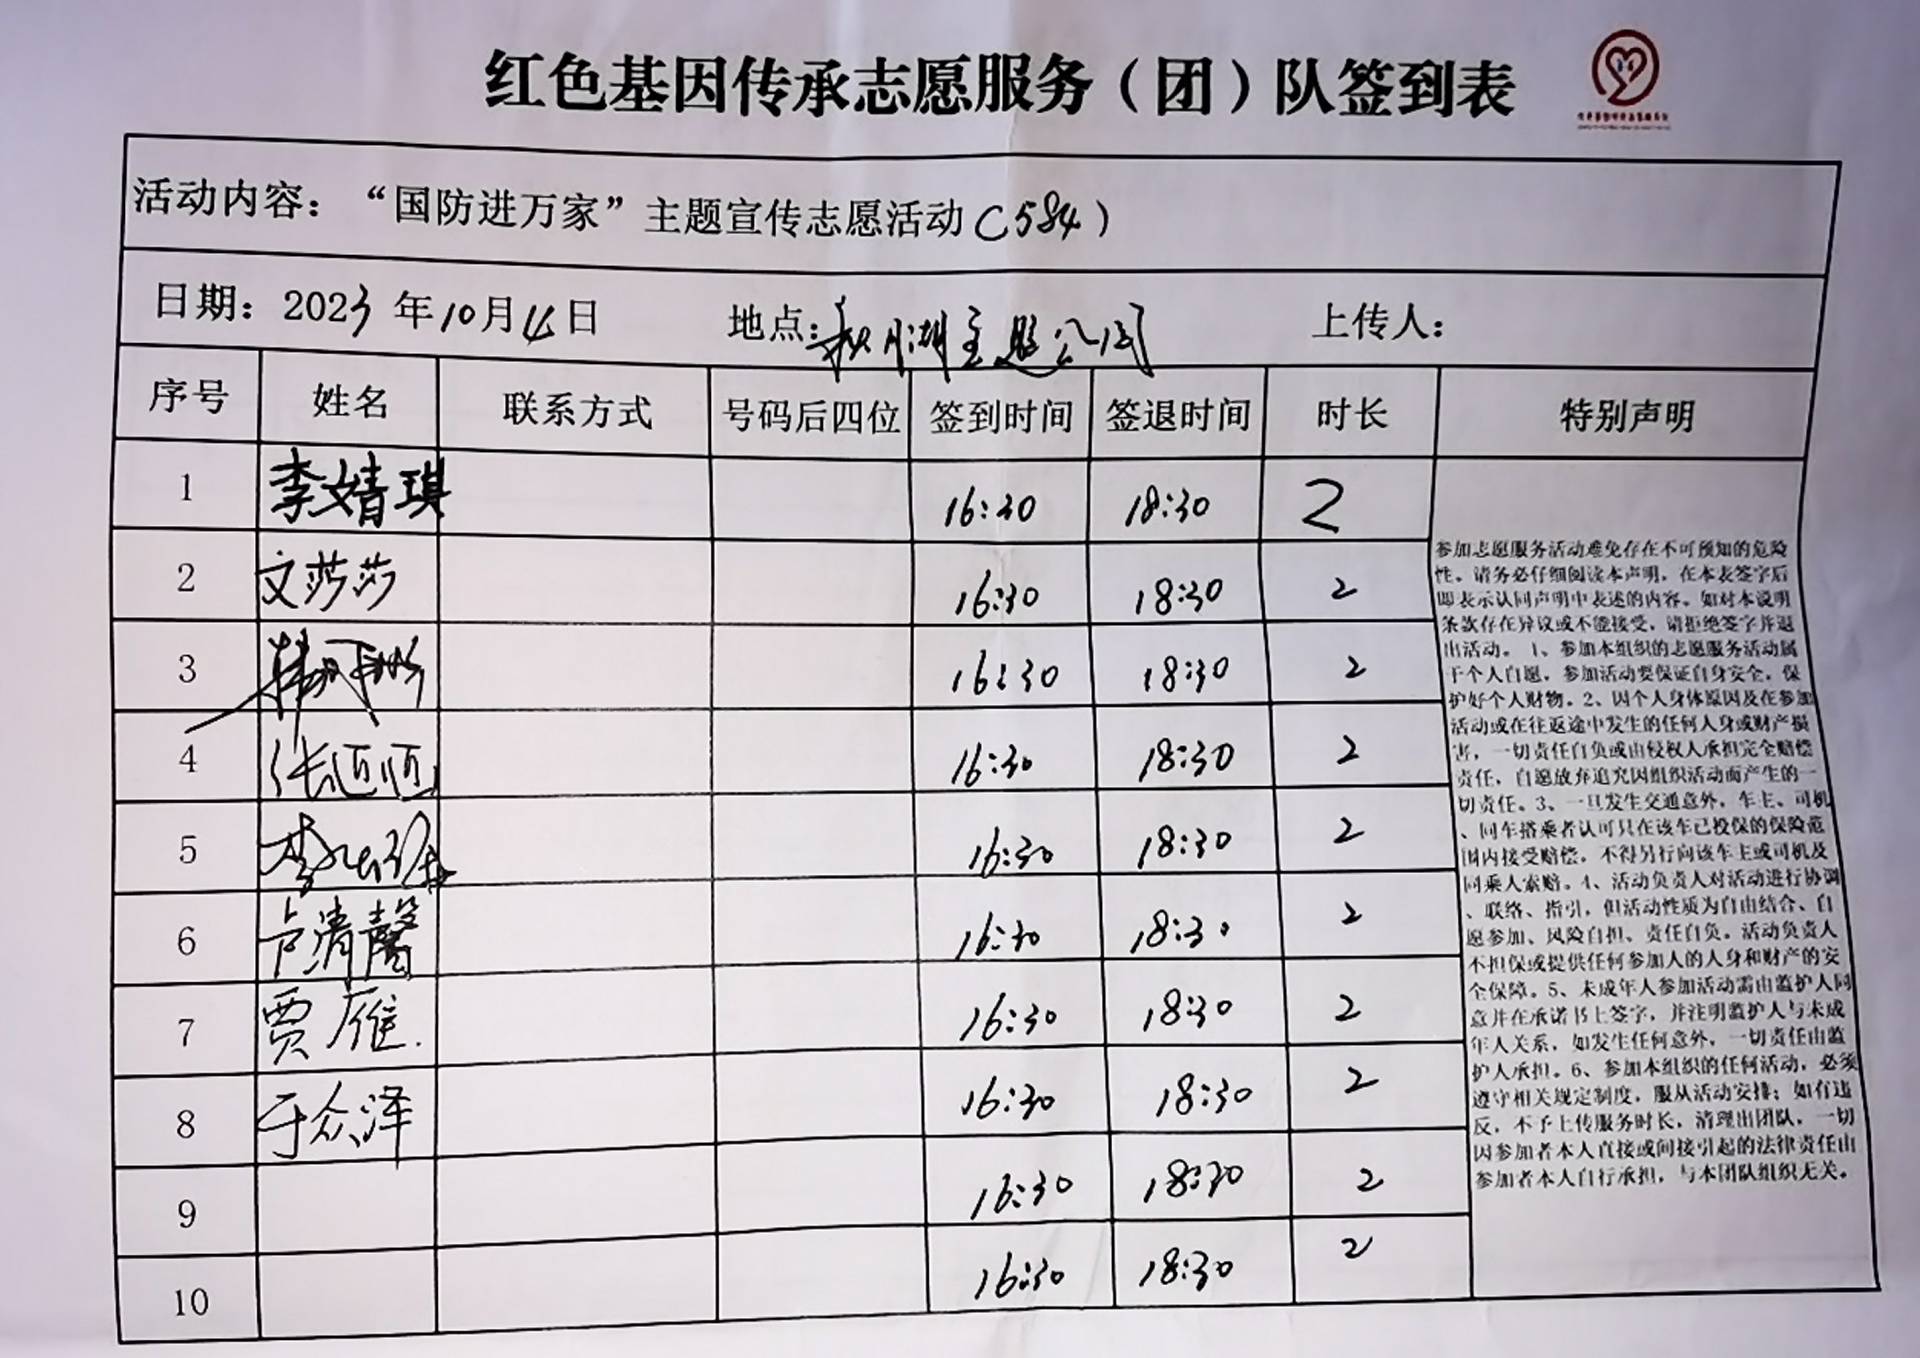 红色基因传承志愿服务（团）队签到表
活动内容：“国防进万家”主题宣传志愿活动（584）
日期：2023年10月14日 地点：秋月湖主题公园 上传人：
序号 姓名 联系方式 号码后四位 签到时间 签退时间 时长 特别声明
1 李婧琪 16:30 18:30 2
2 文莎莎 16:30 18:30 2
3 16:30 18:30 2
4 16:30 18:30 2
5 16:30 18:30 2
6 卢清馨 16:30 18:30 2
7 贾雁 16:30 18:30 2
8 于众泽 16:30 18:30 2
9 16:30 18:30 2
10 16:30 18:30 2
参加志愿服务活动难免存在不可预知的危险
性，请务必仔细阅读本声明，在本表签字后
即表示认同声明中表述的内容。如对本说明
条款存在异议或不能接受，请拒绝签字并退
出活动。1、参加本组织的志愿服务活动属
于个人自愿，参加活动要保证自身安全，保
护好个人财物。2、因个人身体原因及在参加
活动或在往返途中发生的任何人身或财产损
害，一切责任自负或由侵权人承担完全赔偿
责任，自愿放弃追究因组织活动而产生的一
切责任。3、一旦发生交通意外，车主、司机
、同车搭乘者认可只在该车已投保的保险范
围内接受赔偿，不得另行向该车主或司机及
同乘人索赔。4、活动负责人对活动进行协调
、联络、指引，但活动性质为自由结合、自
愿参加、风险自担、责任自负。活动负责人
不担保或提供任何参加人的人身和财产的安
全保障。5、未成年人参加活动需由监护人同
意并在承诺书上签字，并注明监护人与未成
年人关系，如发生任何意外，一切责任由监
护人承担。6、参加本组织的任何活动，必须
遵守相关规定制度，服从活动安排；如有违
反，不予上传服务时长，清理出团队，一切
因参加者本人直接或间接引起的法律责任由
参加者本人自行承担，与本团队组织无关。